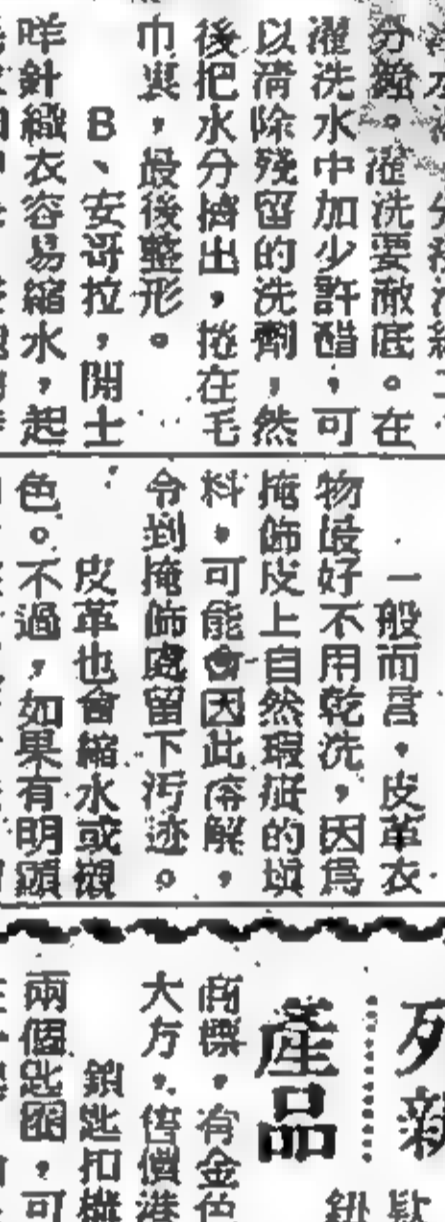 分鐘。濯洗要徹底。在
濯洗水中加少許醋，可
以清除殘留的洗劑，然
後把水分擠出，捲在毛
巾裏，最後整形。
B、安哥拉，開士
咩針織衣容易縮水，起
一般而言，皮革衣
物最好不用乾洗，因爲
掩飾皮上自然瑕疵的填
料，可能會因此溶解，
令到掩飾處留下汚迹。
皮革也會縮水或襯
色。不過，如果有明顯
列
新
產品
商標，有金色
大方，售價港
鎖匙扣機
兩個匙圈，可